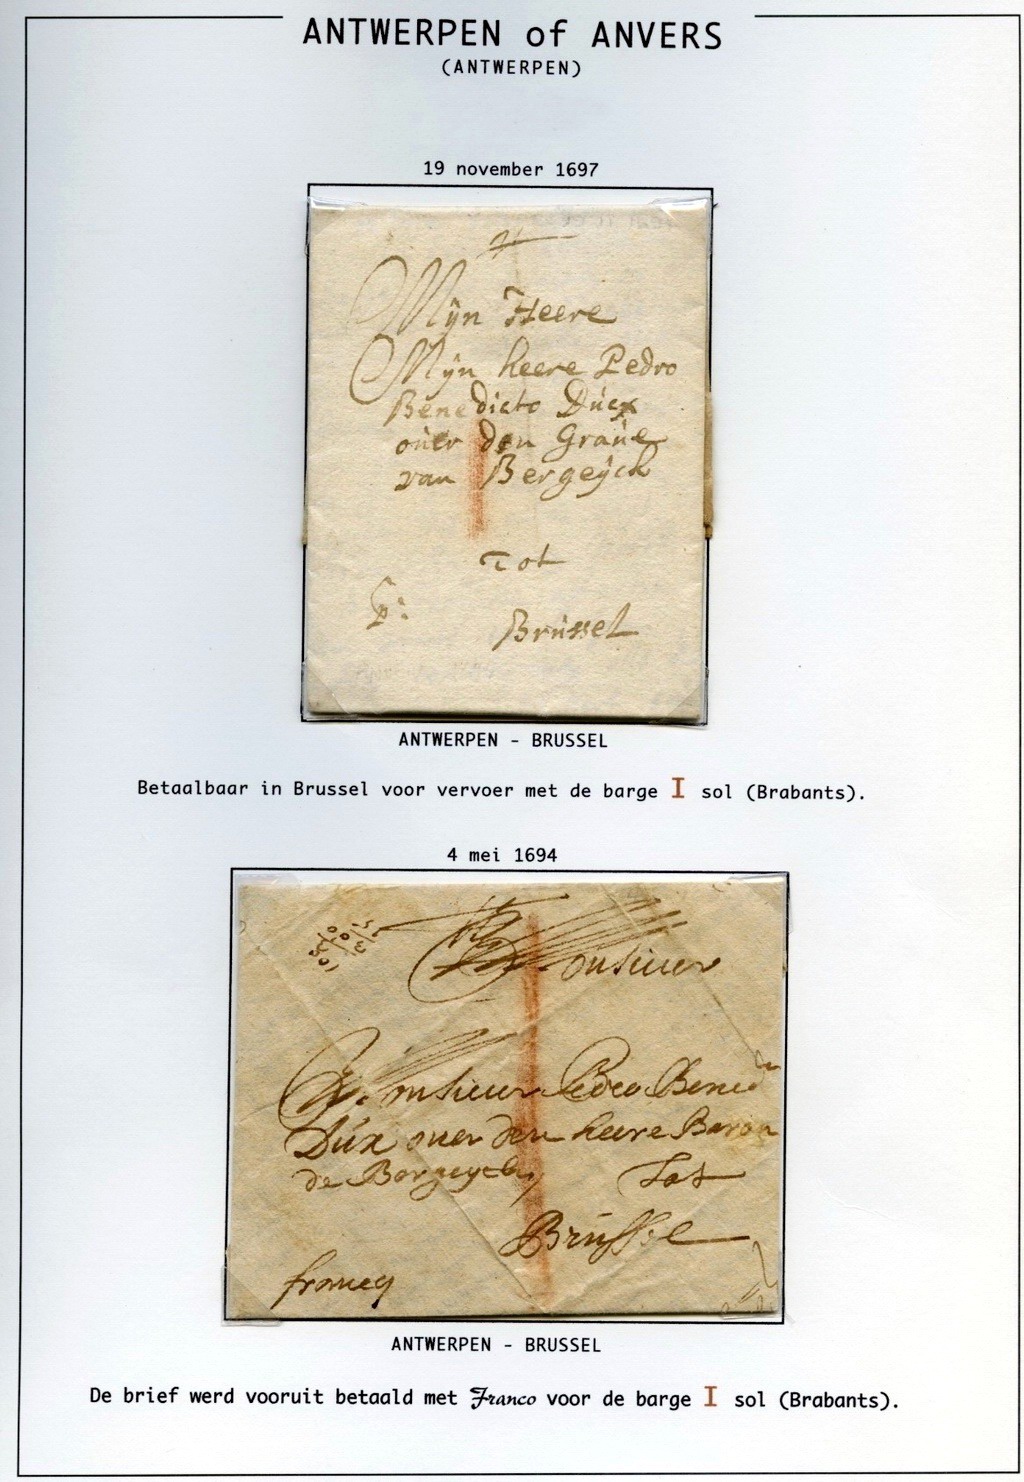 ANTWERPEN of ANVERS
(ANTWERPEN)
19 november 1697
Mijn Heere
Mijn heere Pedro
Benedicto Dúex
oúer den Graúe
van Bergeijck
Tot
p:
Brússel
ANTWERPEN - BRUSSEL
Betaalbaar in Brussel voor vervoer met de barge I sol (Brabants).
4 mei 1694
Monsieur
Monsieur Pedro Bened
Dúx ouer den heere Baron
de Bergeyck Tot
Brússel
francq
ANTWERPEN - BRUSSEL
De brief werd vooruit betaald met Franco voor de barge I sol (Brabants).